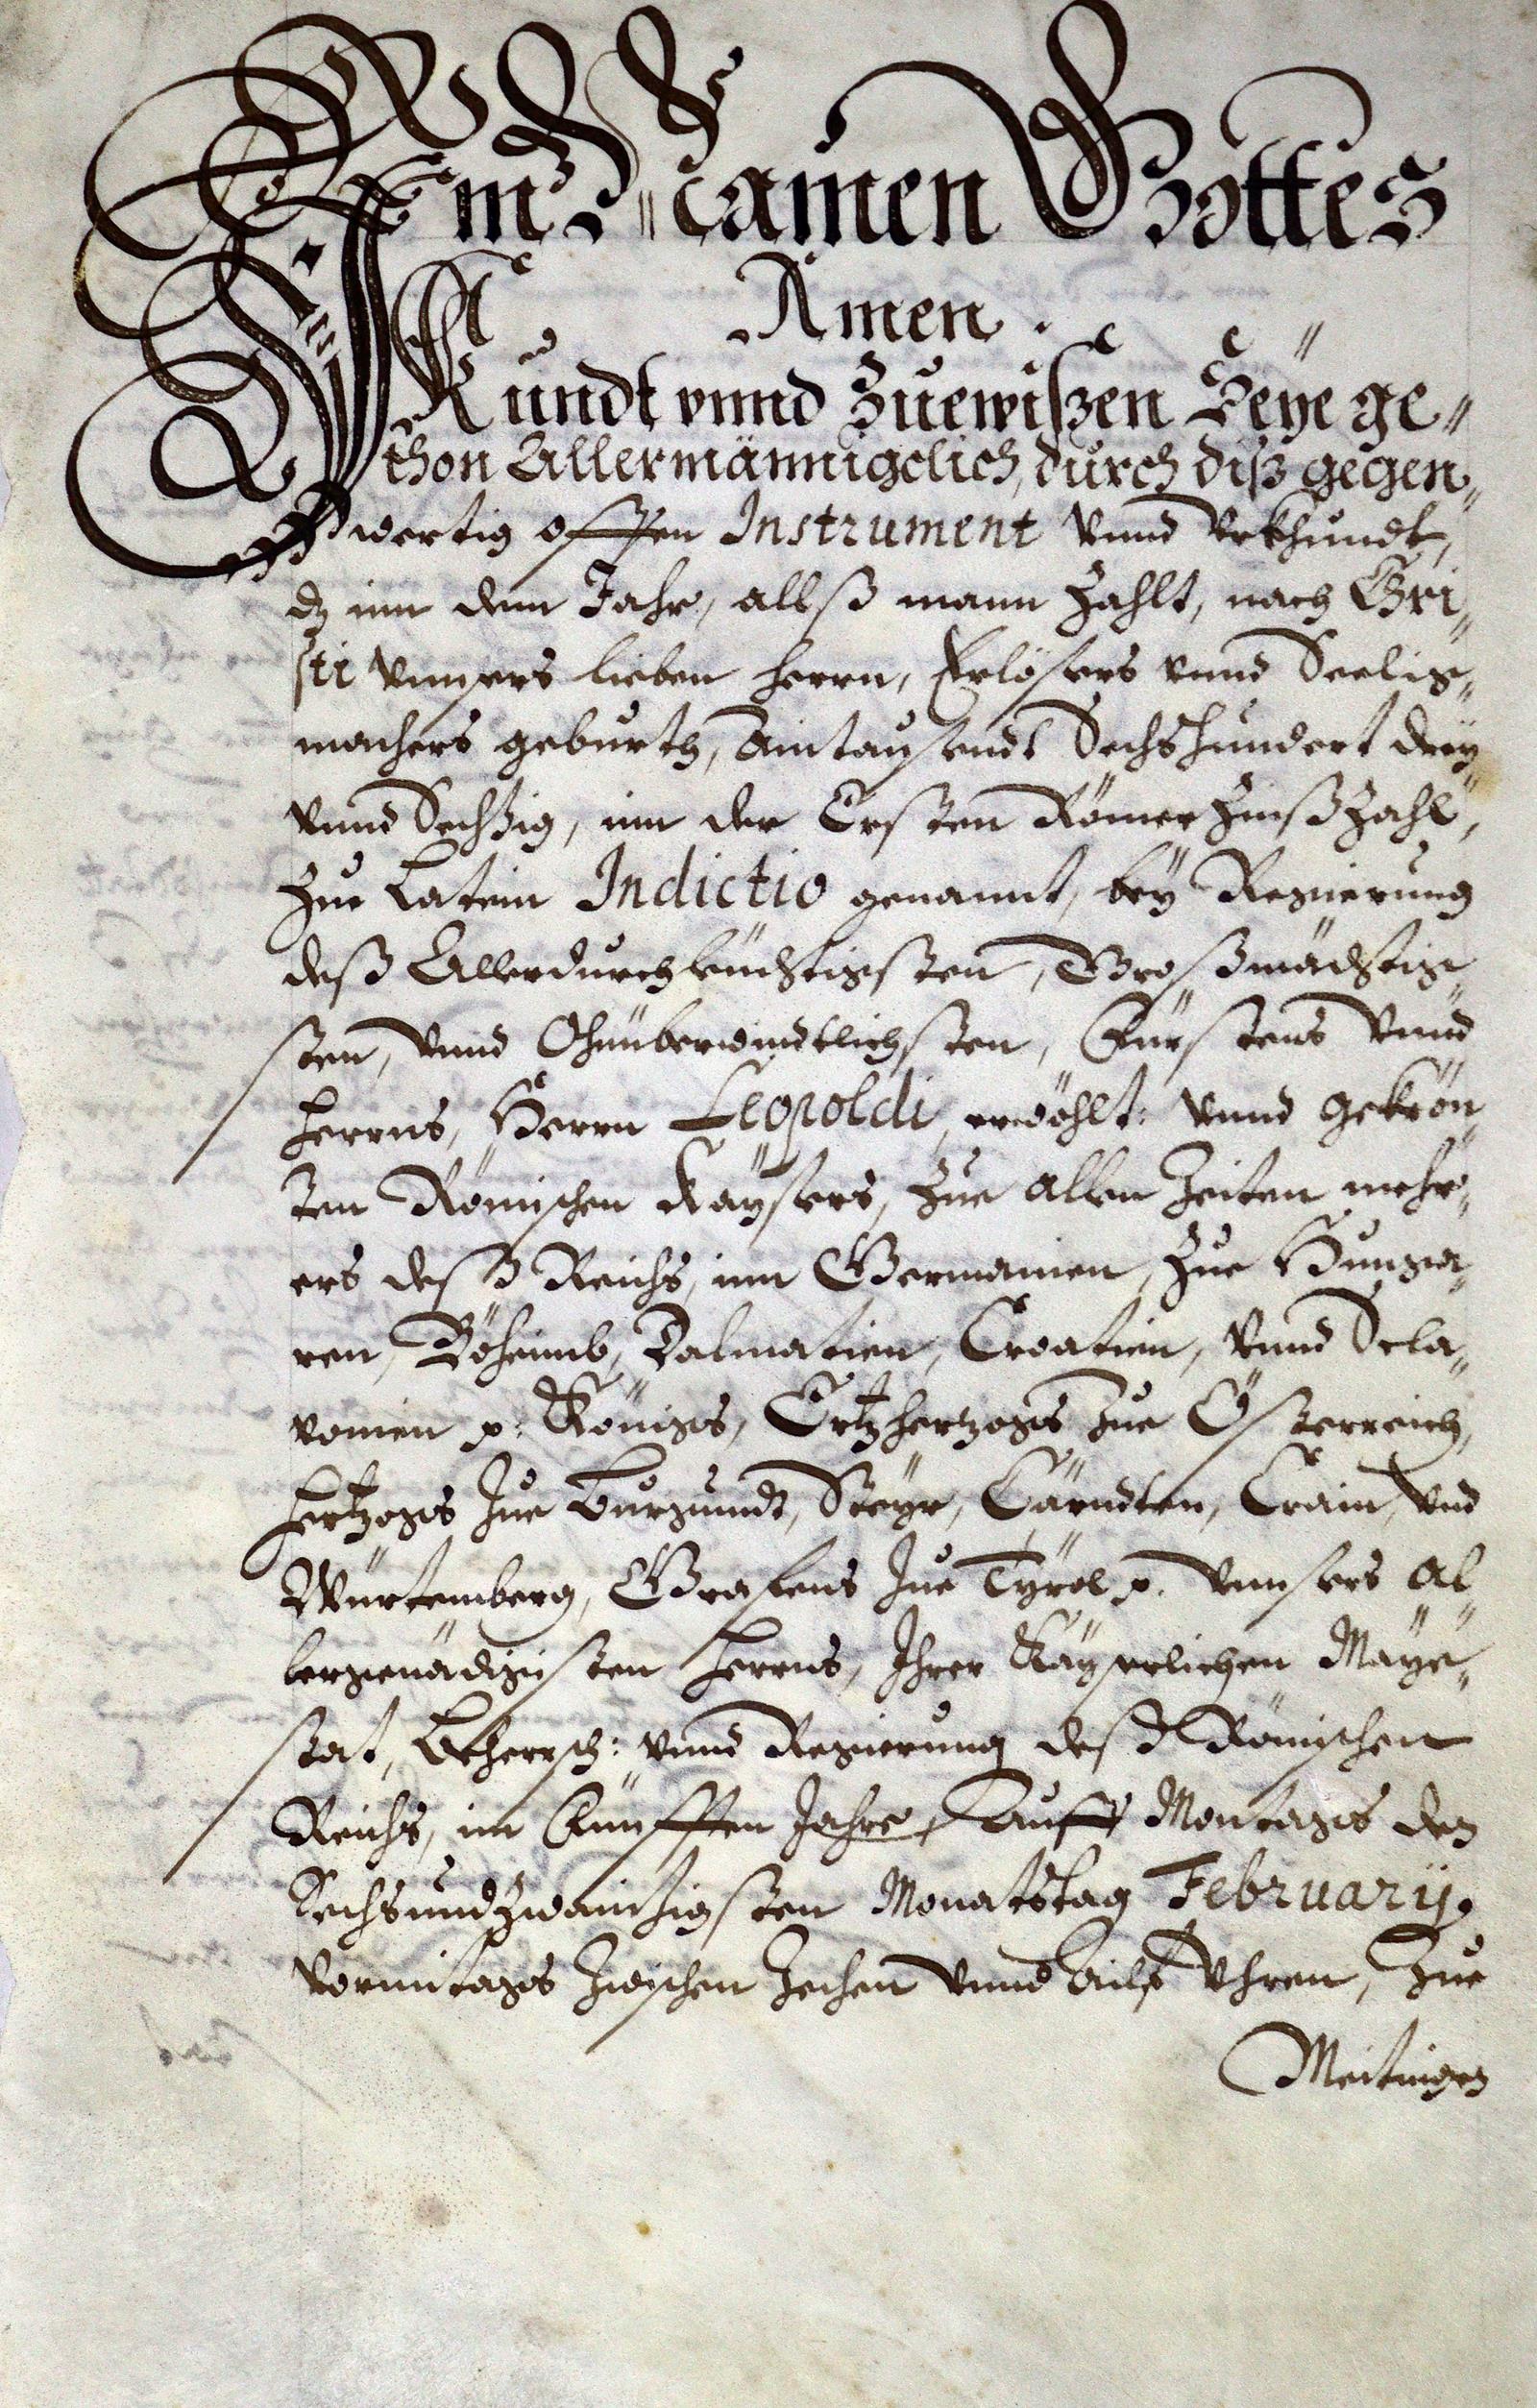 Im Namen Gottes
Amen.
Kundt vnnd Zuewißen Seye ge„
thon Allermännigclich, durch diß gegen„
wertig offen Instrument vnnd Vrkhundt,
dz inn dem Jahr, allß mann Zahlt, nach Chri„
sti vnnsers lieben herrn, Erlösers vnnd Seelig„
machers geburth, Aintausendt Sechshundert drey
vnnd Sechßig, inn der Ersten Römer Zinß Zahl,
Zue Latein Indictio genannt, bey Regierung
deß Allerdurchleuchtigsten, Großmächtig„
sten, vnnd Ohnüberwindtlichsten, Fürstens vnnd
herrns, Herrn Leopoldi, erwöhlt: vnnd gekrön„
ten Römischen Kaysers, Zue allen Zeiten mehr„
ers deß Reichs, inn Germanien, Zue Hunga„
ren, Böheimb, Dalmatien, Croatien, vnnd Scla„
vonien p: Königs, Ertzhertzogs Zue Österreich,
Hertzogs Zue Burgundt, Steyr, Cärndten, Crain, vnd
Würtemberg, Grafens Zue Tyrol p. vnnsers Al„
lergenädigisten herrns, Ihrer Kayserlichen Maye„
stat, Beherrsch: vnnd Regierung deß Römischen
Reichs, im Fünfften Jahre, Auff Montags den
Sechsundzwaintzigsten Monatstag February,
vormitags Zwischen Zechen vnnd Ailf Vhren, Zue
Meitingen